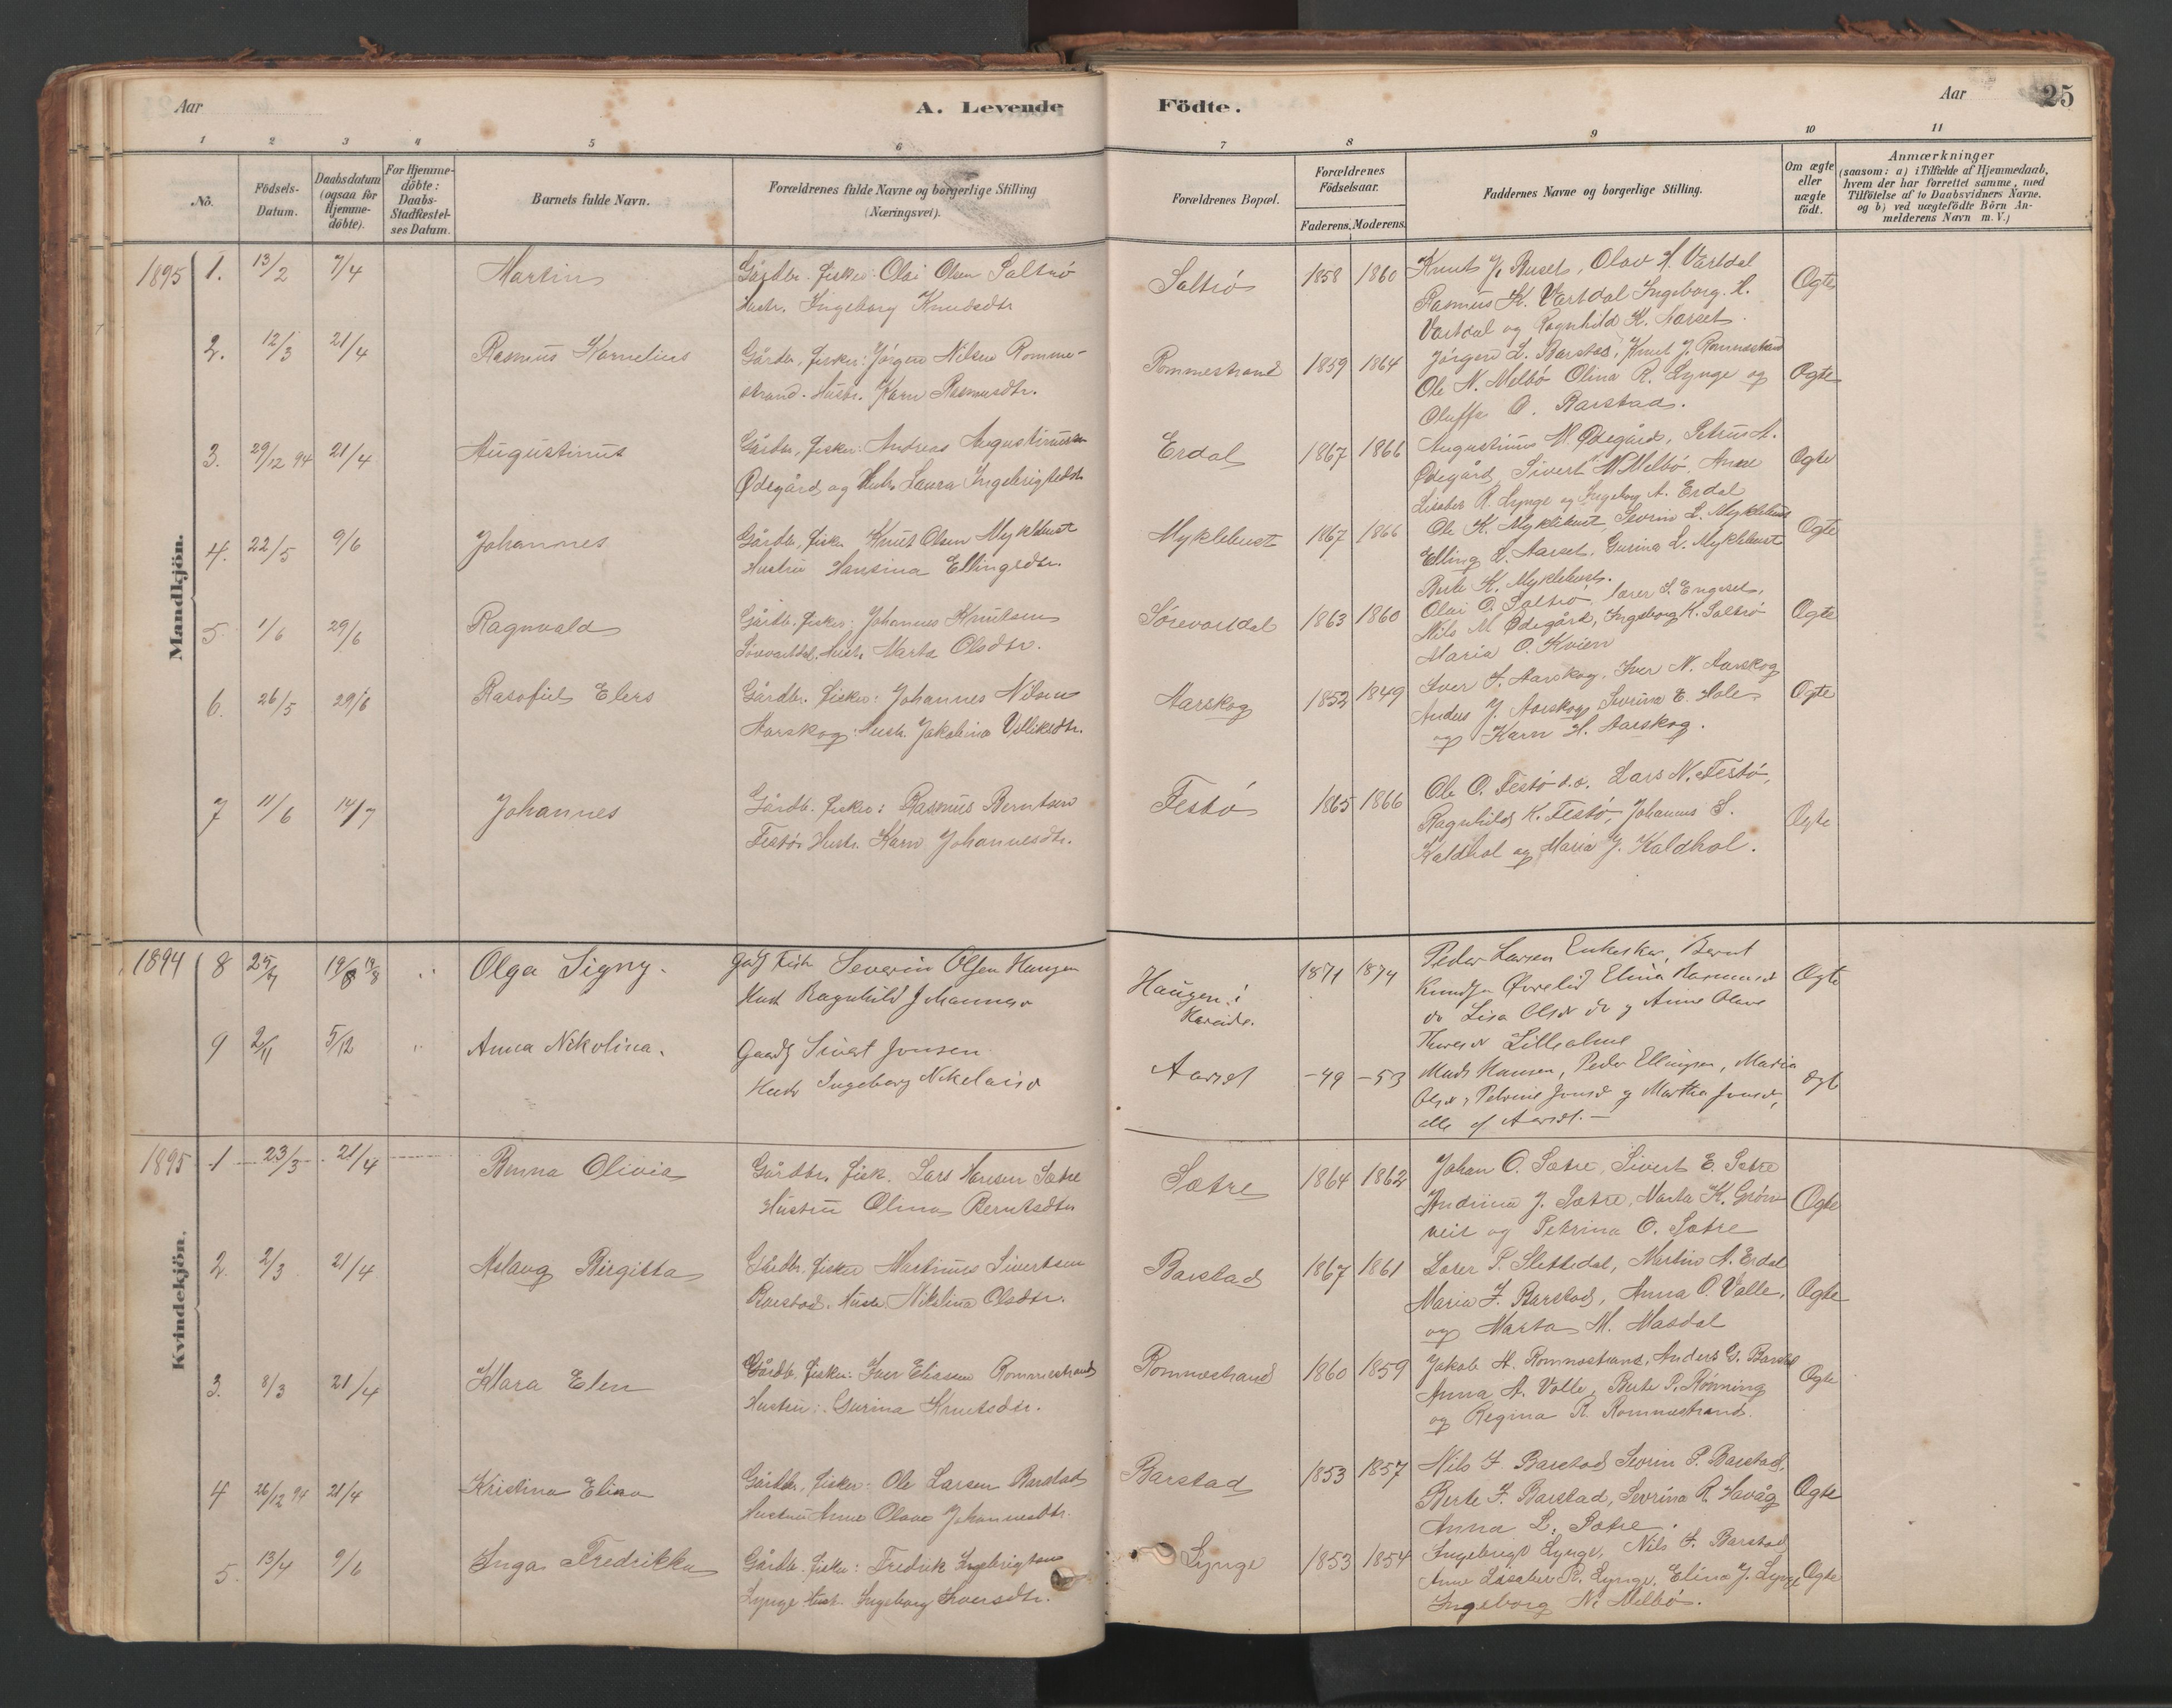 Aar
A. Levende Födte.
Aar
25
1 2 3 4 5 6 7 8 9 10 11
No.
Födsels-Datum.
Daabsdatum (ogsaa for Hjemme-döbte).
For Hjemme-döbte: Daabs-Stadfæstel-ses Datum.
Barnets fulde Navn.
Forældrenes fulde Navne og borgerlige Stilling (Næringsvei).
Forældrenes Bopæl.
Forældrenes Födselsaar.
Faderens. Moderens.
Faddernes Navne og borgerlige Stilling.
Om ægte eller uægte født.
Anmærkninger
(saasom: a) i Tilfælde af Hjemmedaab,
hvem der har forrettet samme, med
Tilföielse af to Daabsvidners Navne.
og b) ved uægtefödte Börn An-
melderens Navn m. V.)
Mandkjön.
1895 1. 13/2 7/4 Martin
Gårdbr. fisker: Olai Olsen Saltrö
Hustr. Ingeborg Knudsdtr
Saltrö 1858 1860
Knut J. Buset, Olav H. Vartdal
Rasmus K. Vartdal Ingeborg H.
Vartdal og Ragnhild K. Aarset.
Ægte
2. 12/3 21/4 Rasmus Kornelius
Gårdbr, fisker: Jørgen Nilsen Romme-
strand. Hustr. Karn Rasmusdtr.
Rommestrand 1859 1864
Jørgen L. Barstad, Knut J. Rommestrand
Ole N. Melbö Olina R. Lynge og
Oluffa O. Barstad.
Ægte
3. 29/12 94 21/4 Augustinus
Gårdbr, fisker: Andreas Augustinussen
Ødegård og Hustr. Laura Ingebrigtsdtr
Erdal 1867 1866
Augustinus M. Ødegård, Petrus A.
Ødegård, Sivert N. Melbö, Anne
Lisaber R. Lynge og Ingeborg A. Erdal
Ægte
4. 22/5 9/6 Johannes
Gårdbr, fisker Knut Olsen Myklebust
Hustru Hansina Ellingsdtr.
Myklebust 1867 1866
Ole K. Myklebust, Severin L. Myklebust
Elling O. Aarset, Gurina L. Myklebust
Berte K. Myklebust.
Ægte
5. 1/6 29/6 Ragnvald
Gårdb. fisker: Johannes Knutsen
Sörevartdal, Hustr. Marta Olsdtr.
Sörevartdal 1863 1860
Olai O. Saltrö, lærer S. Engeset,
Nils M Ødegård, Ingeborg K. Saltrö
Maria O. Kvien
Ægte
6. 26/5 29/6 Rasofiel Elers
Gårdbr. fisker: Johannes Nilsen
Aarskog. Hustr. Jakobina Villiksdtr.
Aarskog 1852 1849
Iver J. Aarskog, Iver N. Aarskog
Anders J. Aarskog, Sevrina E. Hole
og Karn H. Aarskog.
Ægte
7 11/6 14/7 Johannes
Gårdb. fisker: Rasmus Berntsen
Festö, Hustr. Karn Johannesdtr.
Festö 1865 1866
Ole O. Festö d.a. Lars N. Festö,
Ragnhild K. Festö, Johannes S.
Kaldhol og Maria J. Kaldhol.
Ægte
Kvindekjön.
1894 8 25/7 19/8 19/8 Olga Signy.
Severin Olsen Haugen
Hust Ragnhild Johannesd
Haugen i
Hareide.
1871 1874
Peder Larsen Enkesker, Bernt
Knudsen Øvrelid Elina Rasmusd
do Lisa Olsd do og Anne Olave
Thoresd Lilleholme
Ægte
9 2/11 5/12 Anna Nikolina.
Gaardb Sivert Jonsen
Hustr Ingeborg Nikolaisd
Aarset -49 -53
Mads Hansen, Peder Ellingsen, Maria
Olsd, Petrine Jonsd og Martha Jonsd,
alle af Aarset.-
Ægt
1895 1 23/3 21/4 Benna Olivia
Gårdbr, fisk. Lars Hansen Sætre
Hustru Olina Berntsdtr
Sætre 1864 1862
Johan O. Sætre, Sivert E. Sætre
Andrina J. Sætre, Marta K. Grön
veit og Petrina O. Sætre
Ægte
2. 2/3 21/4 Aslaug Birgitta
Gårdbr. fisker Martinus Sivertsen
Barstad. Hustr. Nikolina Olsdtr.
Barstad 1867 1861
Lærer P. Slettedal, Martin A. Erdal
Maria J. Barstad, Anna O. Valle,
og Marta M. Masdal
Ægte
3. 8/3 21/4 Klara Elen
Gårdb. fisker: Iver Eliassen Rommestrand
Hustru: Gurina Knutsdtr.
Rommestrand 1860 1859
Jakob H. Rommestrand, Anders G. Barstad
Anna A. Valle, Berte P. Rönning
og Regina R. Rommestrand.
Ægte
4 26/12 94 21/4 Kristina Elina
Gårdbr, fisker: Ole Larsen Barstad
Hustru Anne Olave Johannesdtr.
Barstad 1853 1857
Nils F Barstad Sevrin P. Barstad,
Berte F. Barstad, Sevrina R. Havåg
Anna L. Sætre.
Ægte
5. 13/4 9/6 Inga Fredrikka
Gårdb. fisker: Fredrik Ingebrigtsen
Lynge Hust. Ingeborg Iversdtr.
Lynge 1853 1854
Ingebrigt Lynge, Nils F. Barstad
Anne Lisaber R. Lynge, Elina J. Lynge
Ingeborg N. Melbö.
Ægte